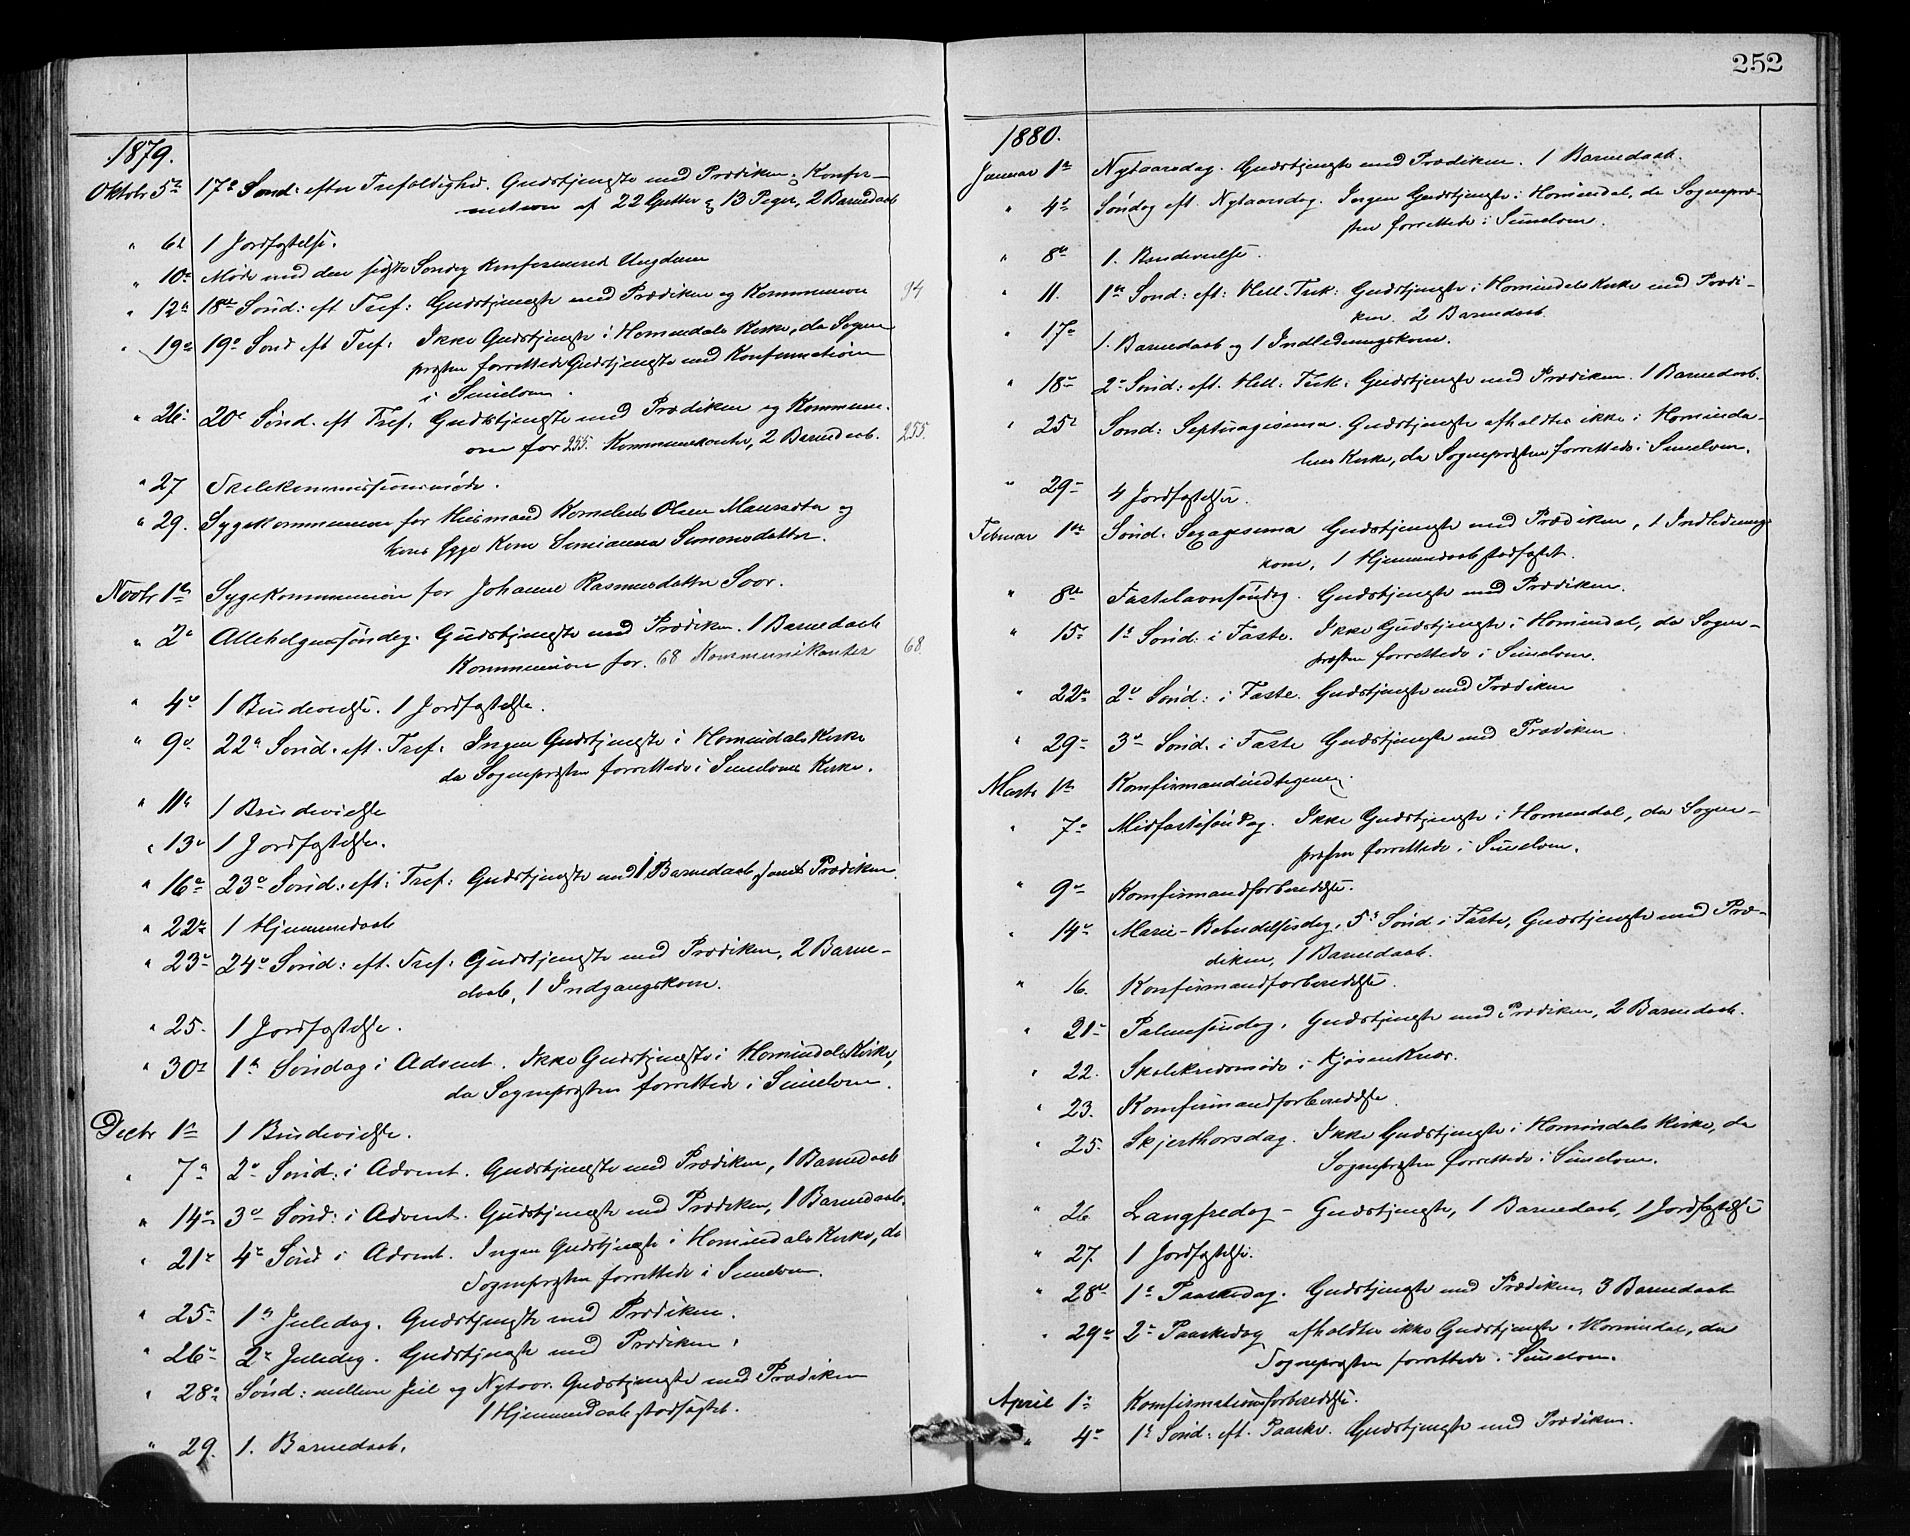 252
1879.
Oktobr 5te 17de Sønd: efter Trefoldighed. Gudstjeneste med Prædiken og Konfir-
mation af 22 Gutter og 13 Piger, 2 Barnedaab
" 6te 1 Jordfæstelse.
" 10de Møde med den sidste Søndag konfirmerede Ungdom
" 12te 18de Sønd: eft. Tref: Gudstjeneste med Prædiken og Kommunion 94
" 19de 19de Sønd eft Tref: Ikke Gudstjeneste i Hornindals Kirke, da Sogne-
præsten forrettede Gudstjeneste med Konfirmation
i Sunelven.
" 26. 20de Sønd. eft Tref: Gudstjeneste med Prædiken og Kommuni-
on for 255 Kommunikanter, 2 Barnedaab. 255.
" 27 Skolekommissionsmøde.
" 29. Sygekommunion for Huusmand Kornelius Olsen og
hans syge Kone Simonsdatter.
Novbr 1ste Sygekommunion for Johanne Rasmusdatter
" 2den Allehelgensøndag. Gudstjeneste med Prædiken. 1 Barnedaab
Kommunion for 68 Kommunikanter 68.
" 4de 1 Brudevielse. 1 Jordfæstelse.
" 9de 22de Sønd. eft. Tref: Ingen Gudstjeneste i Hornindals Kirke
da Sognepræsten forrettede i Sunelvens Kirke.
" 11te 1 Brudevielse
" 13de 1 Jordfæstelse.
" 16de 23de Sønd: eft: Tref: Gudstjeneste med 1 Barnedaab samt Prædiken.
" 22de 1 Hjemmedaab
" 23de 24de Sønd: eft. Tref: Gudstjeneste med Prædiken, 2 Barne-
daab, 1 Indgangskone.
" 25. 1 Jordfæstelse.
" 30te 1ste Søndag i Advent. Ikke Gudstjeneste i Hornindals Kirke,
da Sognepræsten forrettede i Sunelven.
Decbr 1ste 1 Brudevielse.
" 7de 2den Sønd: i Advent. Gudstjeneste med Prædiken, 1 Barnedaab
" 14de 3de Sønd: i Advent. Gudstjeneste med Prædiken, 1 Barnedaab.
" 21de 4de Sønd i Advent. Ingen Gudstjeneste i Hornindals Kirke, da
Sognepræsten forrettede i Sunelven.
" 25de 1ste Juledag. Gudstjeneste med Prædiken.
" 26de 2den Juledag. Gudstjeneste med Prædiken.
" 28de Sønd: mellem Jul og Nytaar. Gudstjeneste med Prædiken
1 Hjemmedaab stadfæstet.
" 29. 1. Barnedaab.
1880.
Januar 1ste Nytaarsdag. Gudstjeneste med Prædiken. 1 Barnedaab.
" 4de Søndag eft. Nytaarsdag. Ingen Gudstjeneste i Hornindal, da Sognepræ-
sten forrettede i Sunelven.
" 8de 1. Brudevielse.
" 11. 1ste Sønd: eft: Hell. Trek: Gudstjeneste i Hornindals Kirke med Prædi-
ken. 2 Barnedaab.
" 17de 1. Barnedaab og 1 Indledningskone.
" 18de 2den Sønd: eft. Hell: Trek: Gudstjeneste med Prædiken. 1 Barnedaab.
" 25de Sønd: Septuagesima. Gudstjeneste afholdtes ikke i Horninda-
lens Kirke, da Sognepræsten forrettede i Sunelven.
" 29de 4 Jordfæstelser.
Februar 1ste Sønd. Sexagesima Gudstjeneste med Prædiken, 1 Indlednings-
kone, 1 Hjemmedaab stadfæstet.
" 8de Fastelavnsøndag. Gudstjeneste med Prædiken.
" 15de 1ste Sønd: i Faste. Ikke Gudstjeneste i Hornindal, da Sogne-
præsten forrettede i Sunelven.
" 22de 2den Sønd: i Faste. Gudstjeneste med Prædiken
" 29de 3de Sønd. i Faste Gudstjeneste med Prædiken.
Marts 1ste Konfirmandindtegning.
" 7de Midfastesøndag. Ikke Gudstjeneste i Hornindal, da Sogne-
præsten forrettede i Sunelven.
" 9de Konfirmandforberedelse.
" 14de Mariæ-Bebudelsesdag, 5te Sønd i Faste, Gudstjeneste med Præ-
diken, 1 Barnedaab.
" 16. Konfirmandforberedelse.
" 21de Palmesøndag. Gudstjeneste med Prædiken, 2 Barnedaab.
" 22. Skolekredsmøde i
" 23. Konfirmandforberedelse.
" 25. Skjærthorsdag. Ikke Gudstjeneste i Hornindals Kirke, da
Sognepræsten forrettede i Sunelven.
" 26 Langfredag - Gudstjeneste, 1 Barnedaab, 1 Jordfæstelse
" 27. 1 Jordfæstelse.
" 28de 1ste Paaskedag. Gudstjeneste med Prædiken, 3 Barnedaab
" 29de 2den Paaskedag afholdtes ikke Gudstjeneste i Hornindal, da
Sognepræsten forrettede i Sunelven.
April 1ste Konfirmationsforberedelse.
" 4de 1ste Sønd: eft. Paaske. Gudstjeneste med Prædiken.